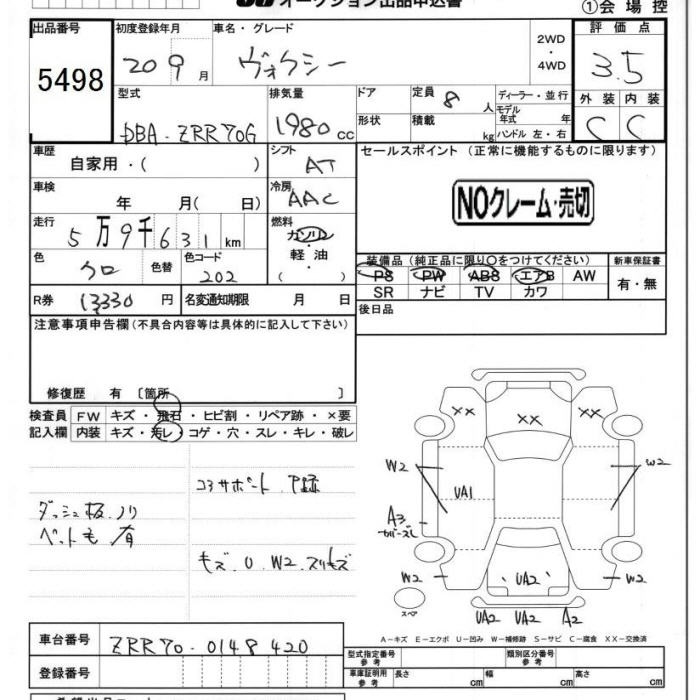 オークション出品申込書
①会場控
出品番号 5498
初度登録年月 20 9 月
車名・グレード ヴォクシー
2WD・4WD
評価点 3.5
外装 C 内装 C
型式 DBA-ZRR70G
排気量 1980 cc
ドア 形状
定員 8 人
積載 kg
ディーラー・並行
モデル年式 年
ハンドル 左・右
車歴 自家用・( )
シフト AT
セールスポイント (正常に機能するものに限ります)
車検 年 月( 日)
冷房 AAC
NOクレーム・売切
走行 5万9千631km
燃料 ガソリン・軽油・( )
色 クロ 色替
色コード 202
装備品 (純正品に限り○をつけてください)
PS PW ABS エアB AW
SR ナビ TV カワ
新車保証書 有・無
R券 13330 円
名変通知期限 月 日
後日品
注意事項申告欄 (不具合内容等は具体的に記入して下さい)
修復歴 有 〔箇所 〕
検査員記入欄
FW キズ・飛石・ヒビ割・リペア跡・×要
内装 キズ・汚レ・コゲ・穴・スレ・キレ・破レ
コアサポート 下録
ダッシュ板、ノリ
ペットも 有
キズ.U.W2.スリキズ
XX XX XX
W2 W2
UA1
A3
カバーズレ
W2 UA2 W2
スペア
UA2 UA2 A2
A-キズ E-エクボ U-凹み W-補修跡 S-サビ C-腐食 XX-交換済
車台番号 ZRR70-0148420
型式指定番号 参考
類別区分番号 参考
登録番号
車庫証明用 参考 長さ cm 幅 cm 高さ cm